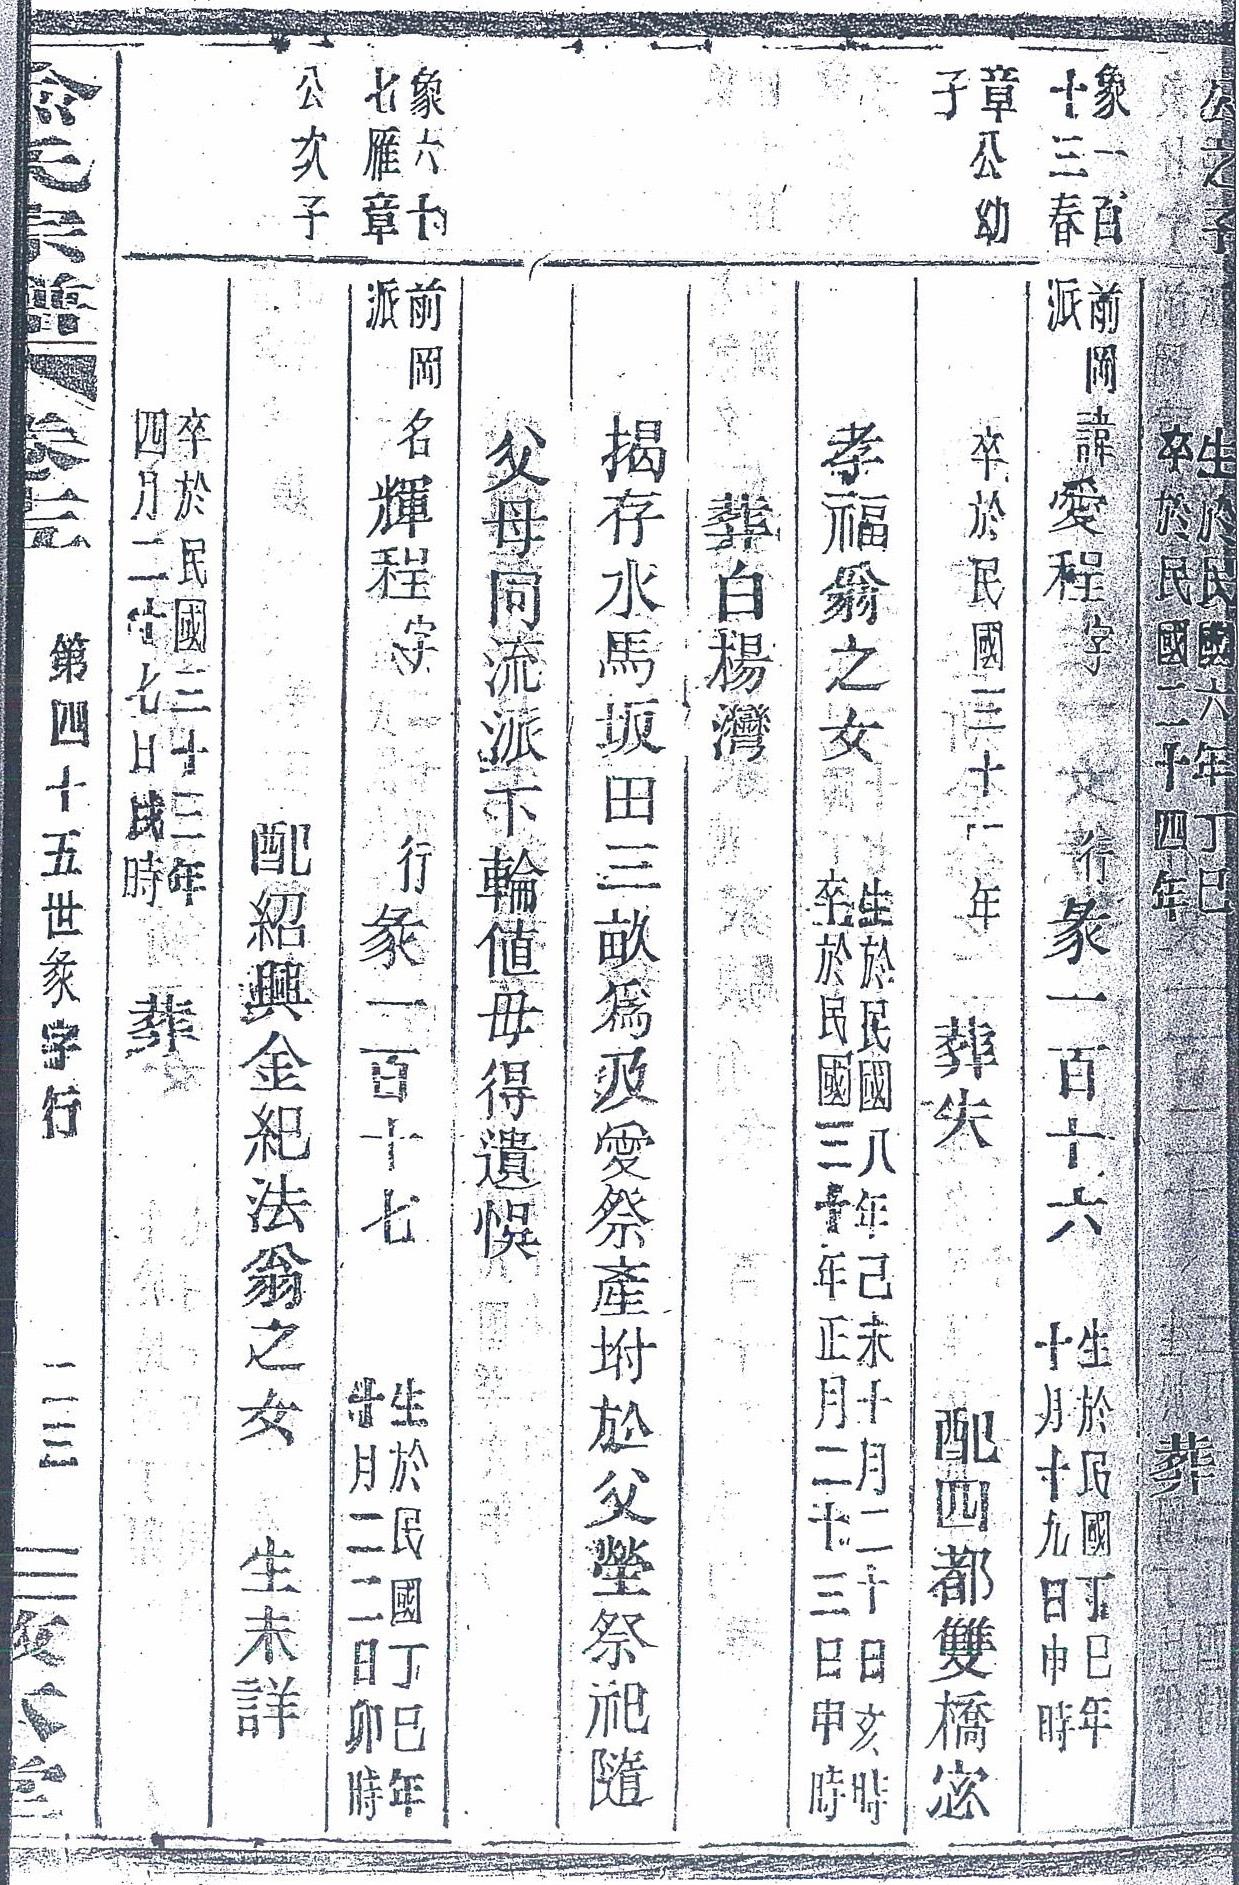 公之子
生於民國六年丁巳
卒於民國二十四年
葬
象一百
十三春
章公幼
子
前岡
派
諱愛程字
行彖一百十六
生於民國丁巳年
十月十九日申時
卒於民國三十一年
葬失
配四都雙橋宓
孝福翁之女
生於民國八年己未十月二十日亥時
卒於民國三十年正月二十三日申時
葬白楊灣
揭存水馬坂田三畝爲及愛祭產坿於父塋祭祀隨
父母同流派下輪值毋得遺悞
象六十
七雁章
公次子
前岡
派
名輝程字
行彖一百十七
生於民國丁巳年
十月二二日卯時
配紹興金紀法翁之女
生未詳
卒於民國三十三年
四月二十七日戌時
葬
氏宗譜
卷三
第四十五世彖字行
一二三
堂